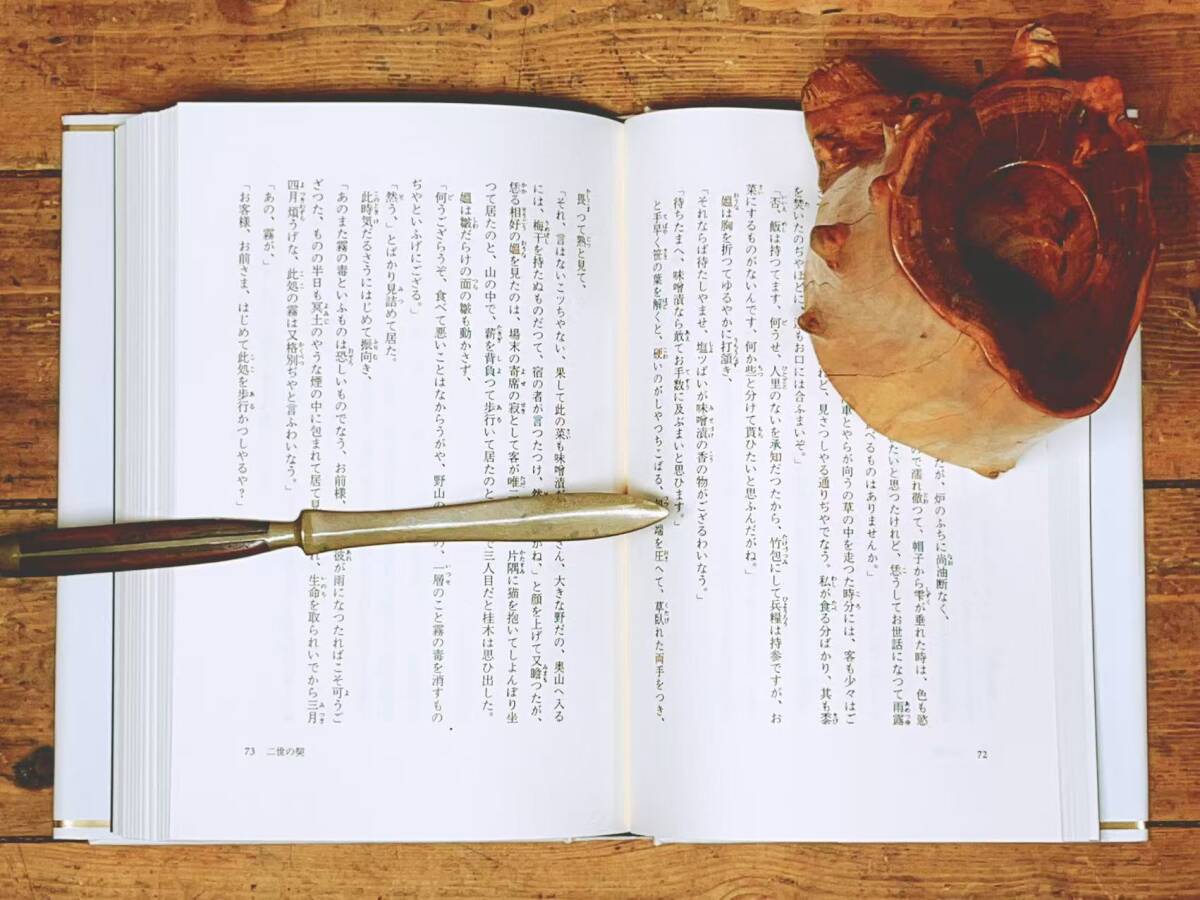 だが、炉のふちに尚油断なく、
ので濡れ徹つて、帽子から雫が垂れた時は、色も慾
たいと思つたけれど、恁うしてお世話になつて雨露
べるものはありませんか。」
車とやらが向うの草の中を走つた時分には、客も少々はご
れど、見さつしやる通りぢやでなう。私が食る分ばかり、其も黍
を焚いたのぢやほどに、もお口には合ふまいぞ。」
「否、飯は持つてます、何うせ、人里のないを承知だつたから、竹包にして兵糧は持参ですが、お
菜にするものがないんです、何か些と分けて貰ひたいと思ふんだがね。」
媼は胸を折つてゆるやかに打頷き、
「それならば待たしやませ、塩ツぱいが味噌漬の香の物がござるわいなう。」
「待ちたまへ、味噌漬なら敢てお手数に及ぶまいと思ひます。」
と手早く笹の葉を解くと、硬いのがしやつちこばる、端を圧へて、草臥れた両手をつき、
72
畏つて熟と見て、
「それ、言はないこツちやない、果して此の菜も味噌漬だ さん、大きな野だの、奥山へ入る
には、梅干を持たぬものだつて、宿の者が言つたつけ、然 がね、」と顔を上げて又瞻つたが、
恁る相好の媼を見たのは、場末の寄席の寂として客が唯二 片隅に猫を抱いてしよんぼり坐
つて居たのと、山の中で、薪を背負つて歩行いて居たのと で三人目だと桂木は思ひ出した。
媼は皺だらけの面の皺も動かさず、
「何うござらうぞ、食べて悪いことはなからうがや、野山の の、一層のこと霧の毒を消すもの
ぢやといふげにござる。」
「然う、」とばかり見詰めて居た。
此時気だるさうにはじめて振向き、
「あのまた霧の毒といふものは恐しいものでなう、お前様、 彼が雨になつたればこそ可うご
ざつた、もの半日も冥土のやうな煙の中に包まれて居て見 れ、生命を取られいでから三月
四月煩うげな、此処の霧は又格別ぢやと言ふわいなう。」
「あの、霧が、」
「お客様、お前さま、はじめて此処を歩行かつしやるや?」
73 二世の契